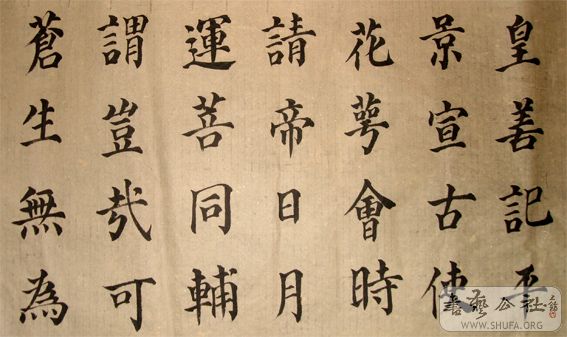 皇善記平
景宣古使
花萼會時
請帝日月
運菩同輔
謂豈哉可
蒼生無為
書藝公社
WWW.SHUFA.ORG